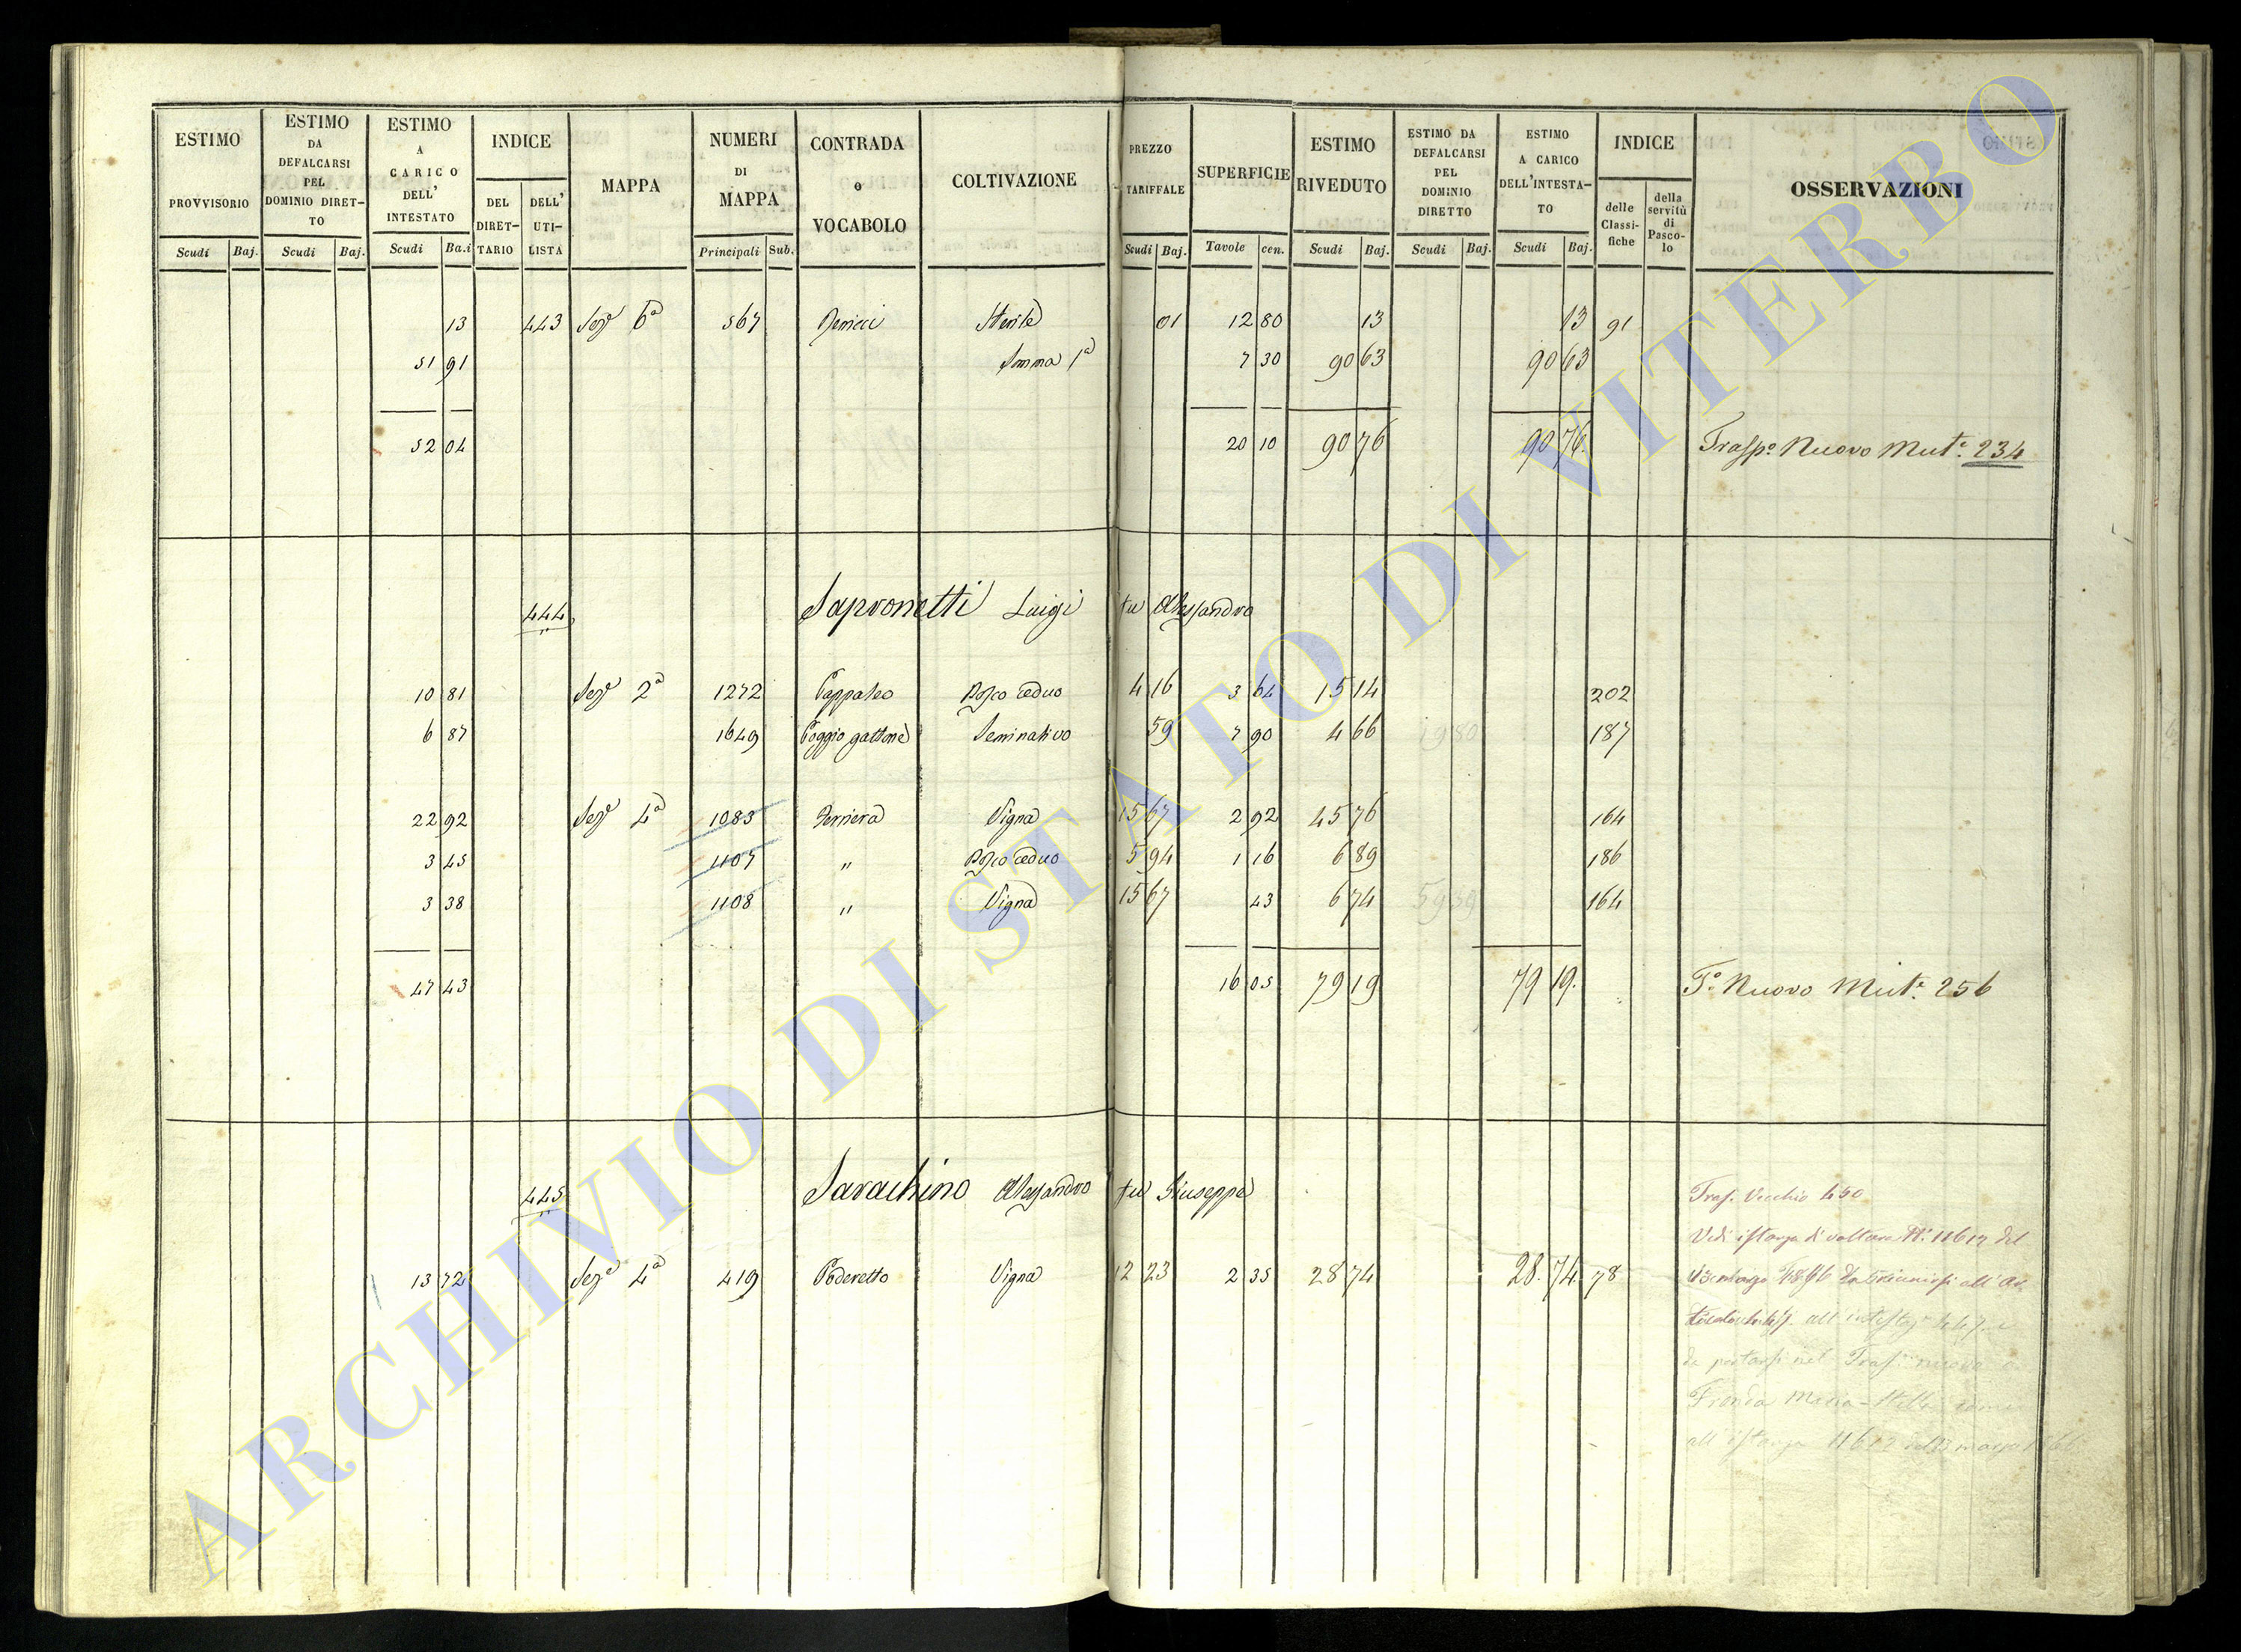 ESTIMO PROVVISORIO Scudi Baj. ESTIMO DA DEFALCARSI PEL DOMINIO DIRETTO Scudi Baj. ESTIMO A CARICO DELL' INTESTATO Scudi Ba.i INDICE DEL DIRETTARIO DELL' UTILISTA MAPPA NUMERI DI MAPPA Principali Sub. CONTRADA o VOCABOLO COLTIVAZIONE PREZZO TARIFFALE Scudi Baj. SUPERFICIE Tavole cen. ESTIMO RIVEDUTO Scudi Baj. ESTIMO DA DEFALCARSI PEL DOMINIO DIRETTO Scudi Baj. ESTIMO A CARICO DELL'INTESTATO Scudi Baj. INDICE delle Classifiche della servitù di Pascolo OSSERVAZIONI
13 443 Seze 6a 567 Sterile 01 12 80 13 13 91
51 91 Somma 1a 7 30 90 63 90 63
52 04 20 10 90 76 90 76. Traspo Nuovo Mut.e 234
444 Sapronetti Luigi fu Alessandro
10 81 Seze 2a 1272 Pappaleo Bosco ceduo 4 16 3 64 15 14 202
6 87 1649 Poggio gattone Seminativo 59 7 90 4 66 19 80 187
22 92 Seze 4a 1083 Vigna 15 67 2 92 45 76 164
3 45 1107 " Bosco ceduo 5 94 1 16 6 89 186
3 38 1108 " Vigna 15 67 43 6 74 59 39 164
47 43 16 05 79 19 79 19. To Nuovo Mut.e 256
445 Sarachino Alessandro fu Giuseppe Tras. Vecchio 450
Vedi istanza di voltura N.
13 72 Seze 4a 419 Poderetto Vigna 12 23 2 35 28 74 28. 74. 78
da portarsi nel Tras. nuovo
Fronda Maria
all istanza
ARCHIVIO DI STATO DI VITERBO